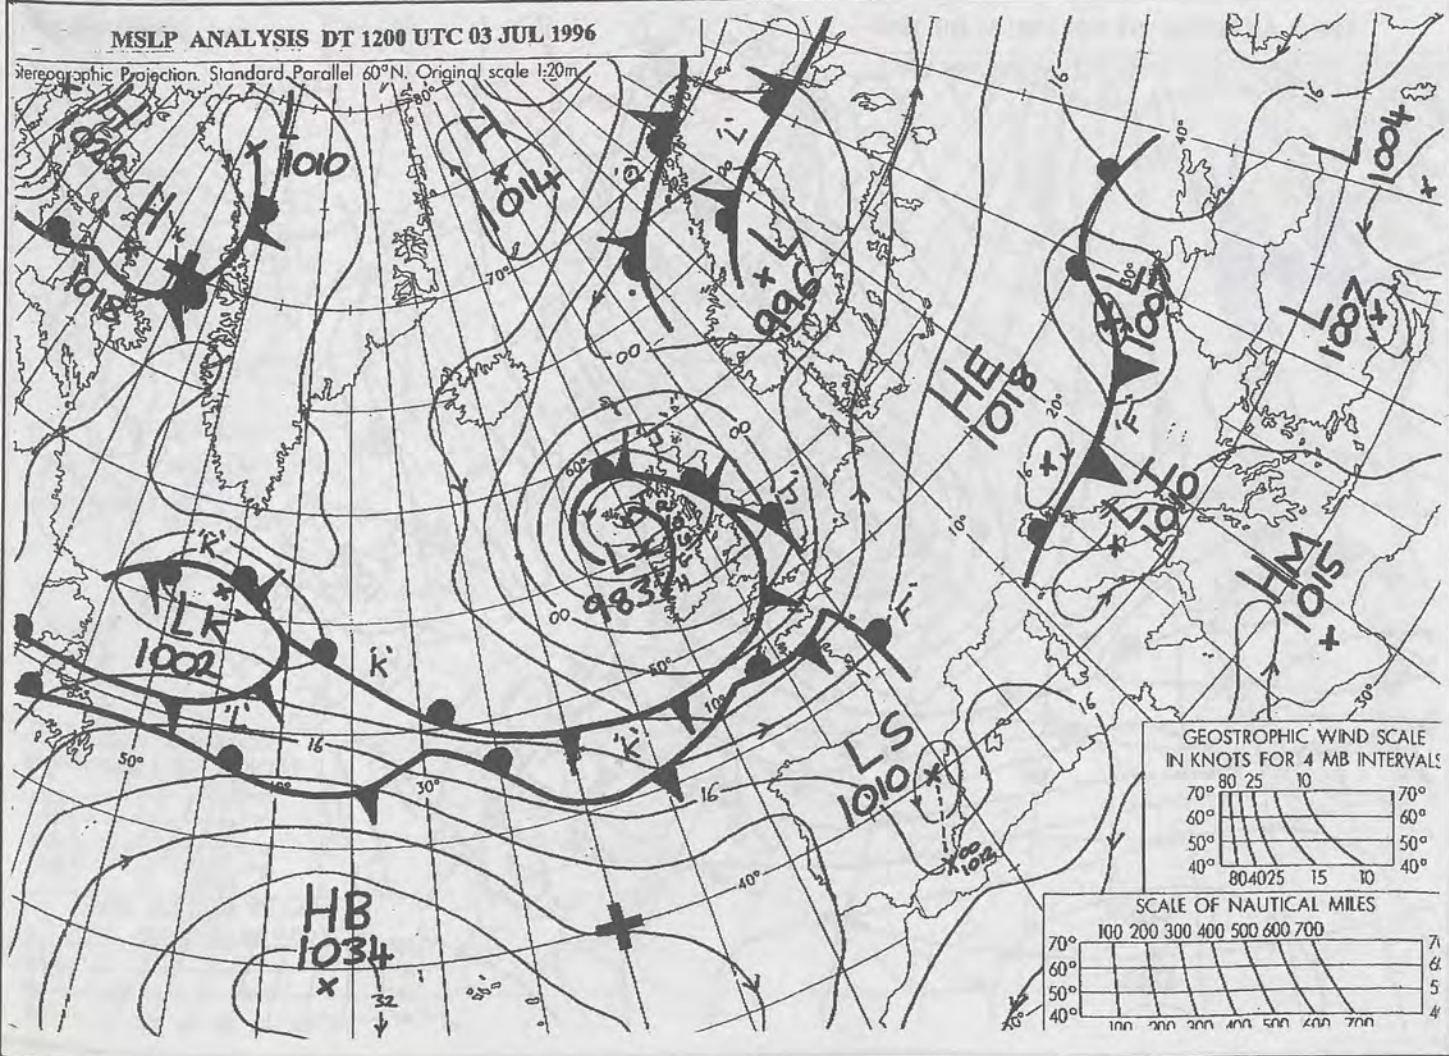 MSLP ANALYSIS DT 1200 UTC 03 JUL 1996
Stereographic Projection. Standard Parallel 60°N. Original scale 1:20m
80°
H
H
1018
L
1010
H
1014
70°
'L'
L
996
00
16
16
40°
L
1004
L
1007
L
1007
HE
1018
20°
16
'F'
10°
60°
00
'J'
'J'
L
983
00
50°
10°
'K'
LK
1002
'K'
'L'
16
50°
30°
'K'
16
'F'
HM
1015
30°
LS
1010
16
1012
40°
HB
1034
32
GEOSTROPHIC WIND SCALE
IN KNOTS FOR 4 MB INTERVALS
80 25 10
70° 70°
60° 60°
50° 50°
40° 40°
80 40 25 15 10
SCALE OF NAUTICAL MILES
100 200 300 400 500 600 700
70°
60°
50°
40°
100 200 300 400 500 600 700